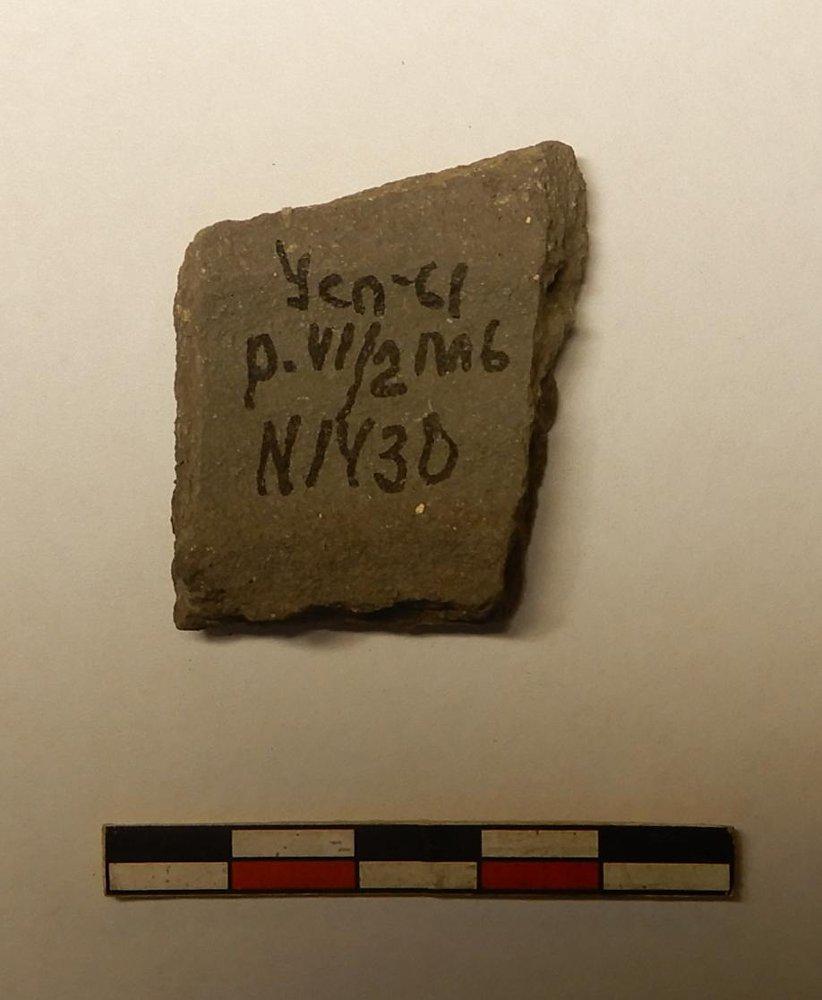 Усп-61
р. VI/2 пл 6
N1430